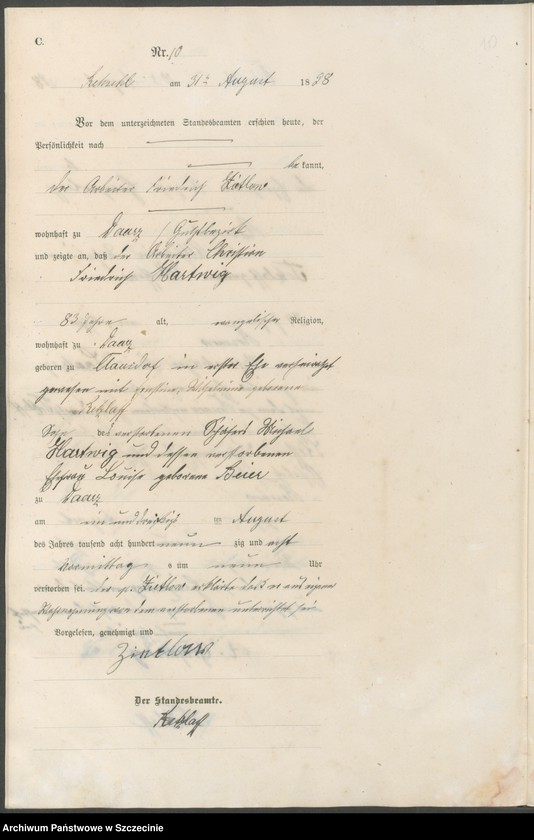 C.
Nr. 10
am 31ten August 1898
Vor dem unterzeichneten Standesbeamten erschien heute, der
Persönlichkeit nach
bekannt,
der Arbeiter Friedrich Zietlow
wohnhaft zu Daarz / Gutsbezirk
und zeigte an, daß der Arbeiter Christian
Friedrich Hartwig
83 Jahre alt, evangelischer Religion,
wohnhaft zu Daarz
geboren zu in erster Ehe verheirathet
gewesen mit Wilhelmine geborene
Retzlaff
Sohn des verstorbenen Schäfers Michael
Hartwig und dessen verstorbenen
Ehefrau Louise geborene Beier
zu Daarz
am ein und dreißig August
des Jahres tausend acht hundert neun zig und acht
Vormittag s um neun Uhr
verstorben sei. der p. Zietlow erklärte daß er aus eigner
dem verstorbenen unterrichtet sei
Vorgelesen, genehmigt und
Zietlow
Der Standesbeamte.
Retzlaff
Archiwum Państwowe w Szczecinie